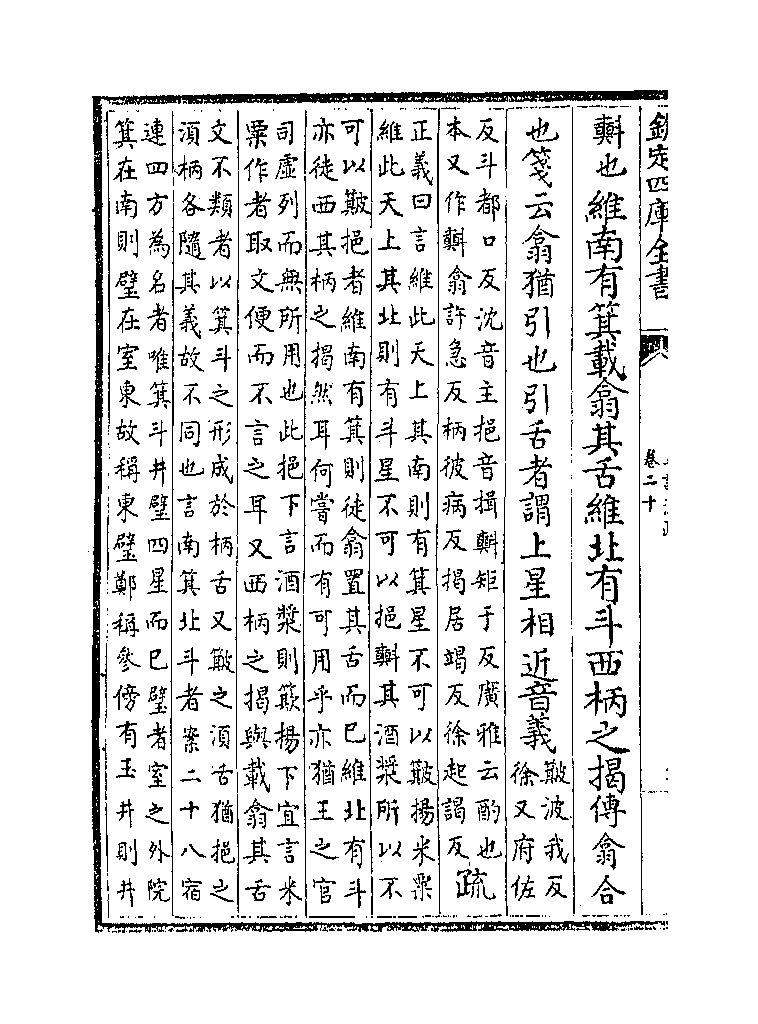 欽定四庫全書
卷二十
㪺也維南有箕載翕其舌維北有斗西柄之揭傳翕合
也箋云翕猶引也引舌者謂上星相近音義簸波我反
徐又府佐
反斗都口反沈音主挹音揖㪺矩于反廣雅云酌也
本又作㪺翕許急反柄彼病反揭居竭反徐起謁反疏
正義曰言維此天上其南則有箕星不可以簸揚米粟
維此天上其北則有斗星不可以挹㪺其酒漿所以不
可以簸挹者維南有箕則徒翕置其舌而已維北有斗
亦徒西其柄之揭然耳何嘗而有可用乎亦猶王之官
司虛列而無所用也此挹下言酒漿則簸揚下宜言米
粟作者取文便而不言之耳又西柄之揭與載翕其舌
文不類者以箕斗之形成於柄舌又簸之湏舌猶挹之
湏柄各隨其義故不同也言南箕北斗者案二十八宿
連四方為名者唯箕斗井璧四星而已璧者室之外院
箕在南則璧在室東故稱東璧鄭稱參傍有玉井則井